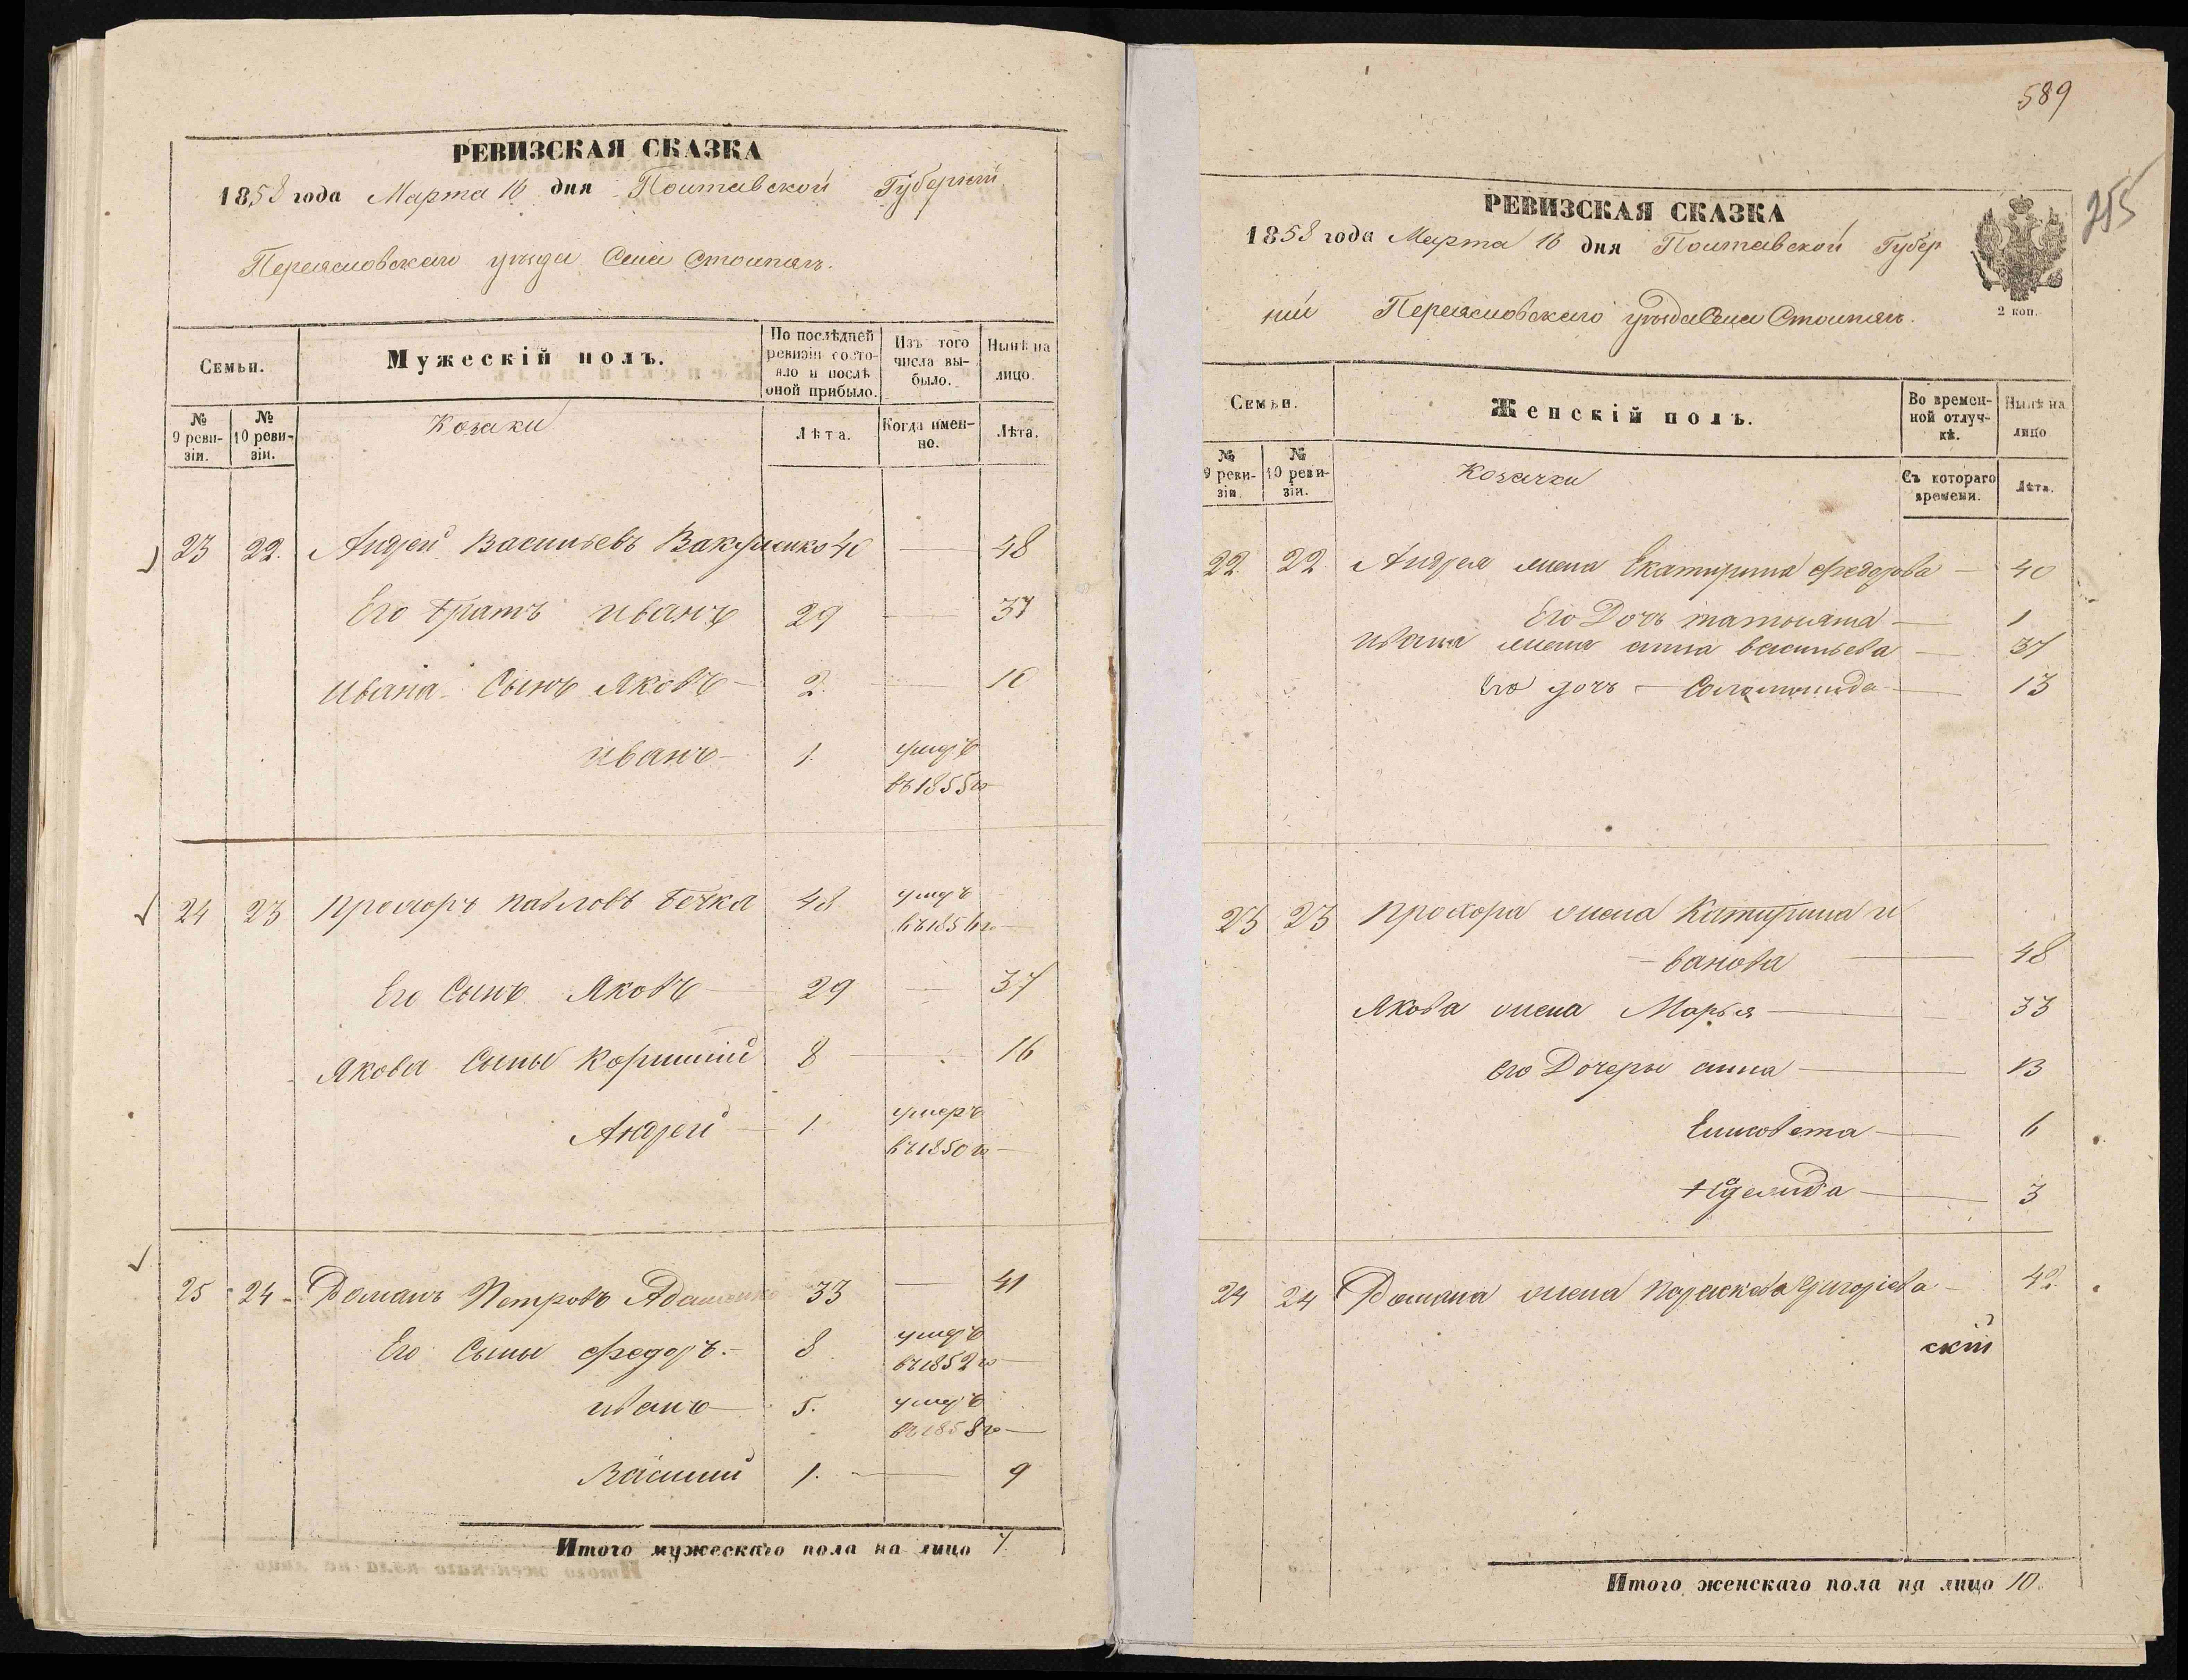 РЕВИЗСКАЯ СКАЗКА
1858 года Марта 16 дня Полтавской Губерніи
Переясловскаго уѣзда Села Стоптяг.
Семьи. Мужескій полъ. По послѣдней ревизіи состояло и послѣ оной прибыло. Изъ того числа выбыло. Нынѣ на лицо.
№ 9 ревизіи. № 10 ревизіи. Козаки Лѣта. Когда именно. Лѣта.
23 22. Андрей Васильевъ Вакуленко 40 — 48
Его братъ иванъ 29 — 37
ивана Сынъ Яковъ — 2. — 10
иванъ — 1. умеръ
въ 1855 го
24 23 Прохоръ павловъ Бечка 48 умеръ
въ 1856 го —
Его Сынъ Яковъ — 29 — 37
Якова Сыны 8 — 16
Андрей — 1 умеръ
въ 1850 го —
25 24 Романъ Петровъ Адаменко 33 — 41
Его Сыны Федоръ. — 8 умеръ
въ 1852 го —
иванъ — 5. умеръ
въ 1858 го —
Василий 1. — 9
Итого мужескаго пола на лицо 7
589
255
РЕВИЗСКАЯ СКАЗКА
1858 года Марта 16 дня Полтавской Губер
ніи Переясловскаго уѣзда Села Стоптяг.
2 коп.
Семьи. Женскій полъ. Во временной отлучкѣ. Нынѣ на лицо
№ 9 ревизіи № 10 ревизіи. Козачки Съ котораго времени. Лѣта.
22. 22 Андрея жена Екатирина Федорова — 40
Его Дочь татьяна — 1
ивана жена анна васильева — 37
Его дочь — Соломонида — 13
23 23 Прохора жена Катирина и
— ванова — 48
Якова жена Марья — 33
Его Дочеры анна — 13
Елисовета — 6
— 3
24 24 Романа жена Парасковя Григоріева — 42.
скій
Итого женскаго пола на лицо 10.